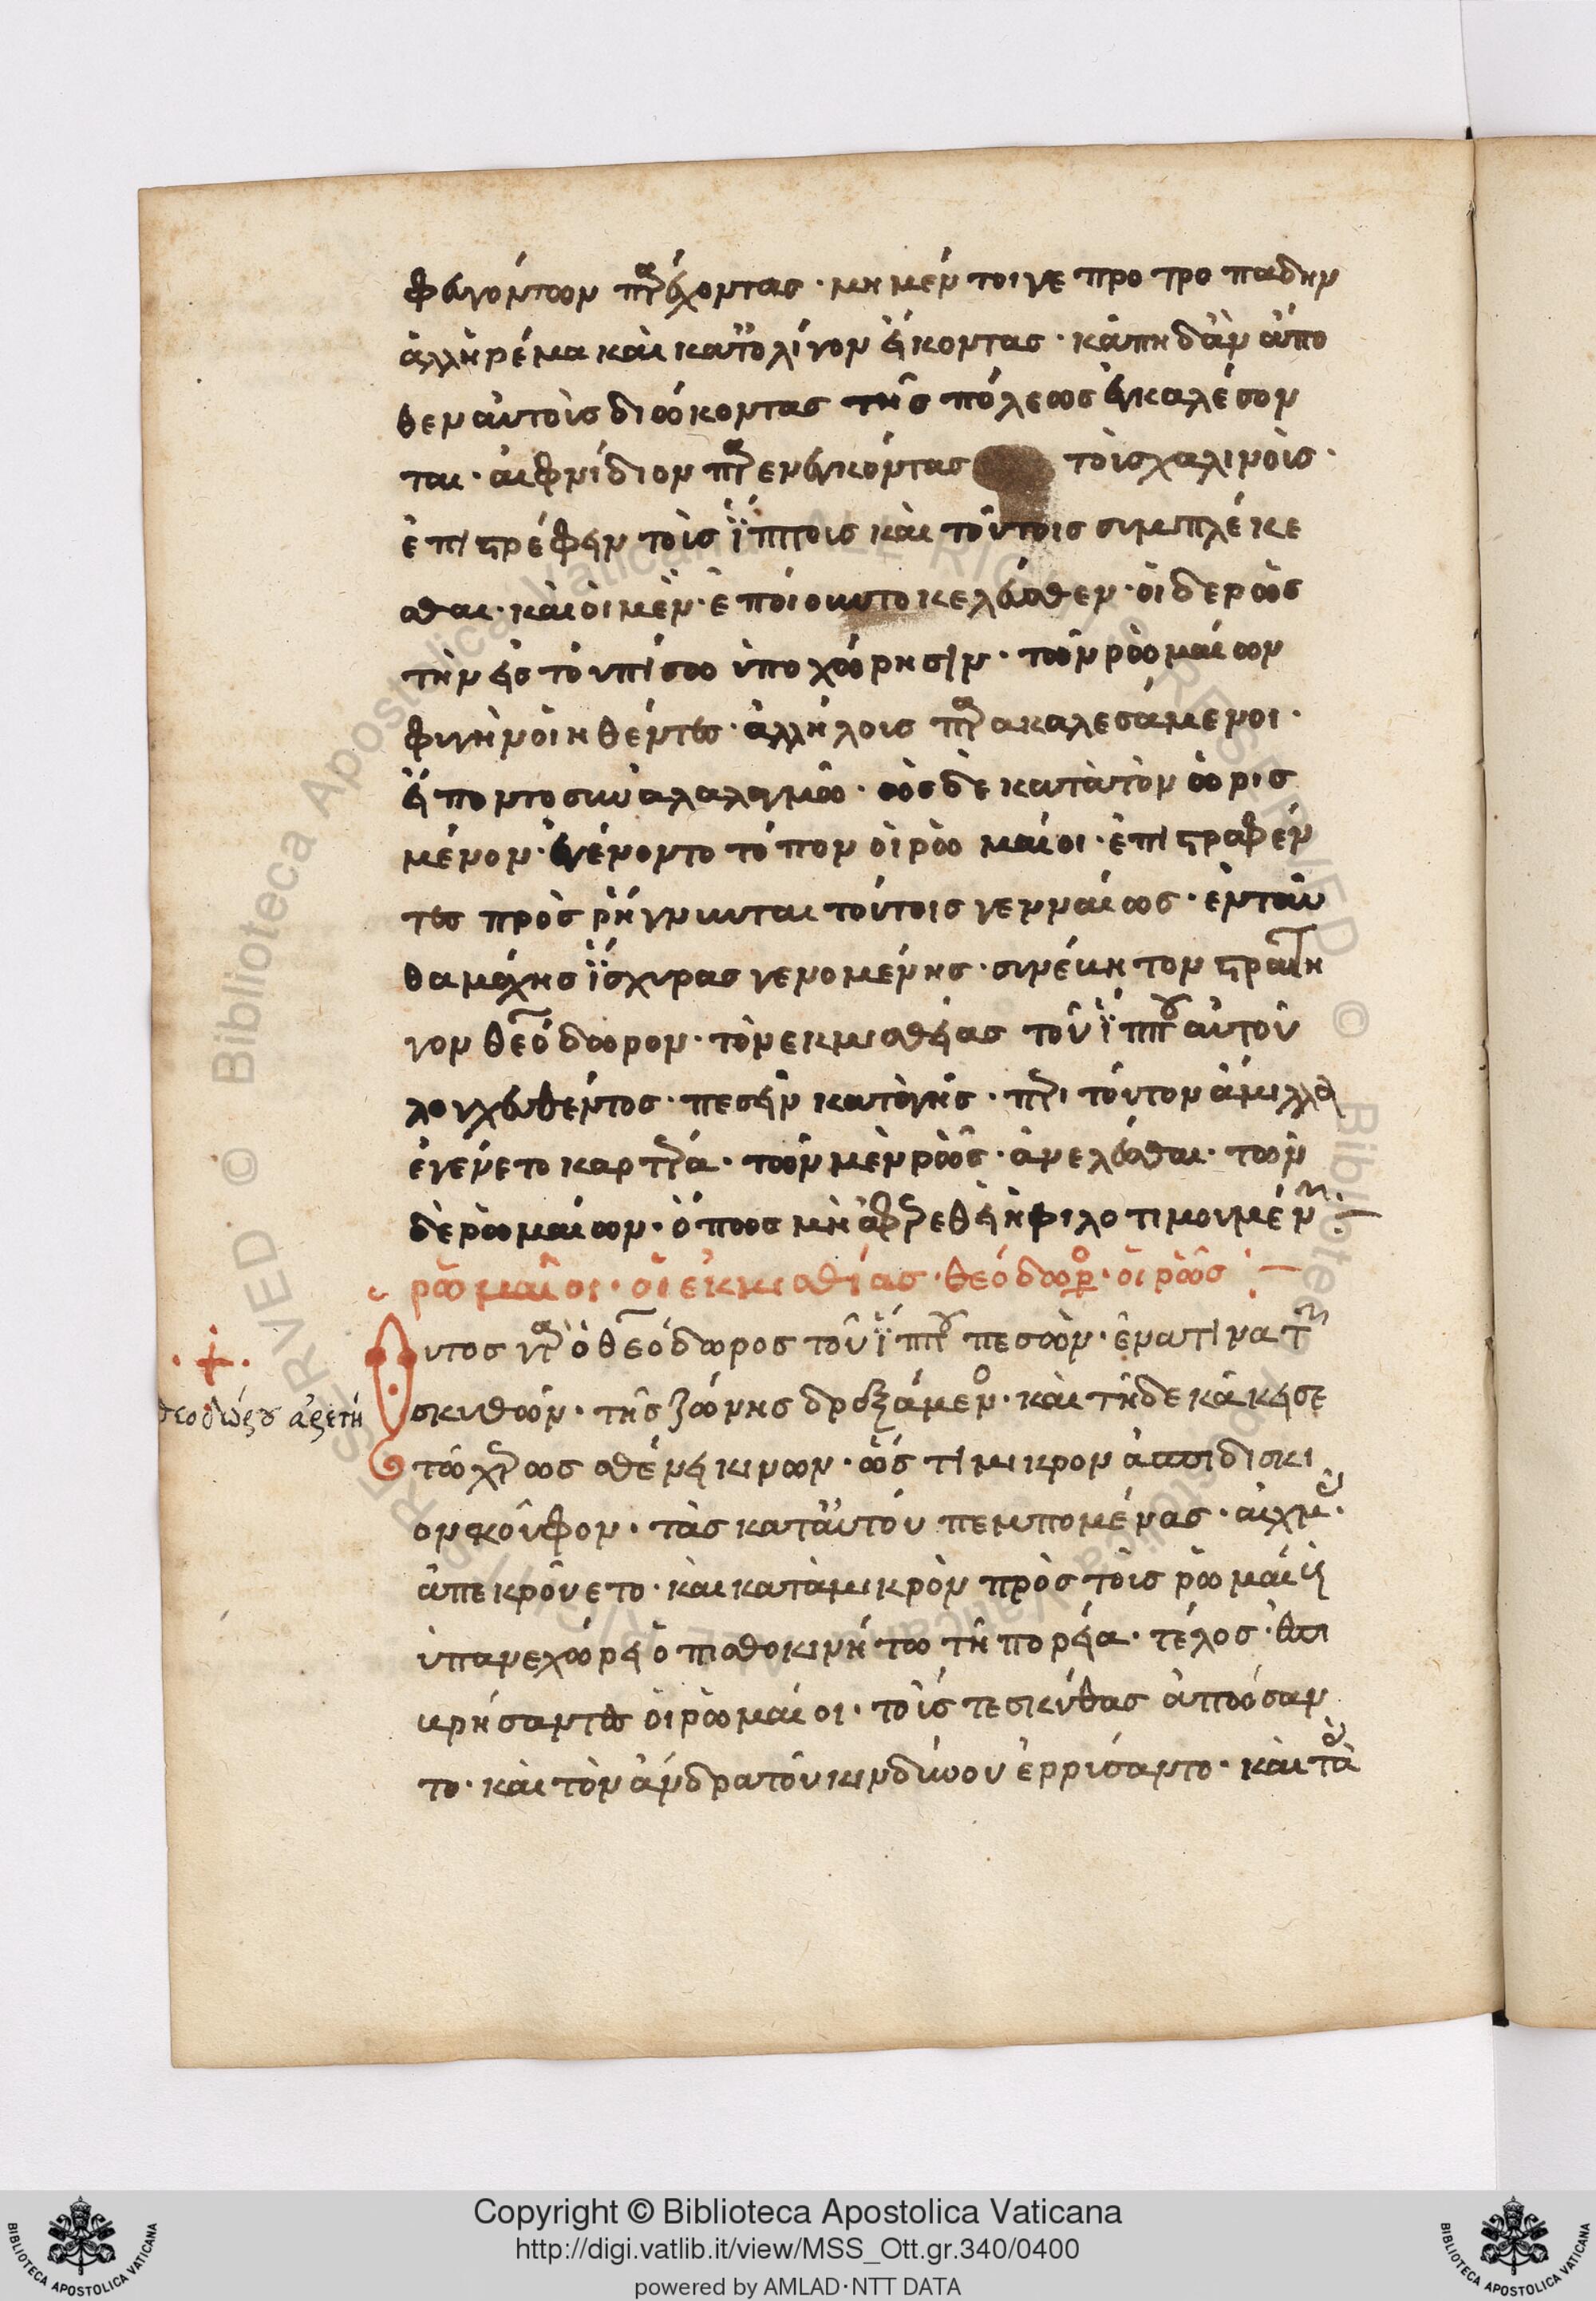 φευγόντων παρέχοντας· μὴ μέν τοιγε προτροπάδην
ἀλλ' ἠρέμα καὶ κατ' ὀλίγον εἴκοντας· κἀπηδὰν ἄπο
θεν αὐτοὺς διώκοντας τῆς πόλεως ἐκκαλέσον
ται· αἰφνίδιον παρενεγκόντας τοῖς χαλινοῖς·
ἐπιστρέφειν τοὺς ἵππους καὶ τούτοις συμπλέκε
σθαι· καὶ οἱ μὲν· ἐποίουν τὸ κελευσθέν· οἱ δε ρὼς
τὴν εἰς τουπίσω ὑποχώρησιν· τῶν ρωμαίων
φυγὴν οἰηθέντες· ἀλλήλους παρακαλεσάμενοι·
εἵποντο σὺν ἀλαλαγμῶ· ὡς δὲ κατὰ τὸν ὡρισ
μένον· ἐγένοντο τόπον οἱ ρωμαῖοι· ἐπιστραφέν
τες προσρήγνυνται τούτοις γενναίως· ἐνταῦ
θα μάχης ἰσχυρας γενομένης· συνέβη τον στρατη
γον θεόδωρον· τὸν εκ μισθείας τοῦ ἵππου αὐτοῦ
λογχευθέντος· πεσεῖν κατα γῆς· περι τούτον ἅμιλλα
ἐγένετο καρτερά· τῶν μὲν ρὼς· ἀνελέσθαι· τῶν
δὲ ρωμαίων· ὅπως μὴ ἀφαιρεθείη φιλοτιμουμένων
ρωμαῖοι· οἱ ἐκ μισθίας· θεόδωρος· οἱ ρῶς
ὗτος γὰρ ὁ θεόδωρος τοῦ ἵππου πεσὼν· ἕνα τινα τῶν
σκυθῶν· τῆς ζώνης δραξάμενος· καὶ τῆδε κἀκεῖσε
τῶ χερὼς σθένει κινων· ὥς τι μικρον ἀσπιδίσκι
ον κοῦφον· τὰς κατ' αὐτοῦ πεμπομένας· αἰχμὰς·
ἀπεκρούετο· καὶ κατὰ μικρὸν πρὸς τοὺς ρωμαίους
ὑπανεχώρει ὀπισθοκινήτω τῆ πορεία· τέλος· ἐπι
κρήσαντες οἱ ρωμαῖοι· τούς τε σκύθας ἀπώσαν
το· καὶ τὸν ἄνδρα τοῦ κινδύνου ἐρρύσαντο· καὶ τὰ
θεοδώρου ἀρετή
Copyright © Biblioteca Apostolica Vaticana
http://digi.vatlib.it/view/MSS_Ott.gr.340/0400
powered by AMLAD·NTT DATA
BIBLIOTECA APOSTOLICA VATICANA
BIBLIOTECA APOSTOLICA VATICANA